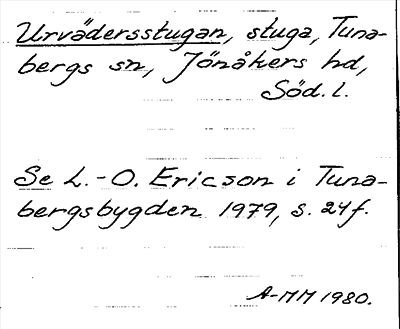 Urvädersstugan, stuga, Tuna-
bergs sn, Jönåkers hd,
Söd. l.
Se L.-O. Ericson i Tuna-
bergsbygden 1979, s. 24f.
A-MM 1980.